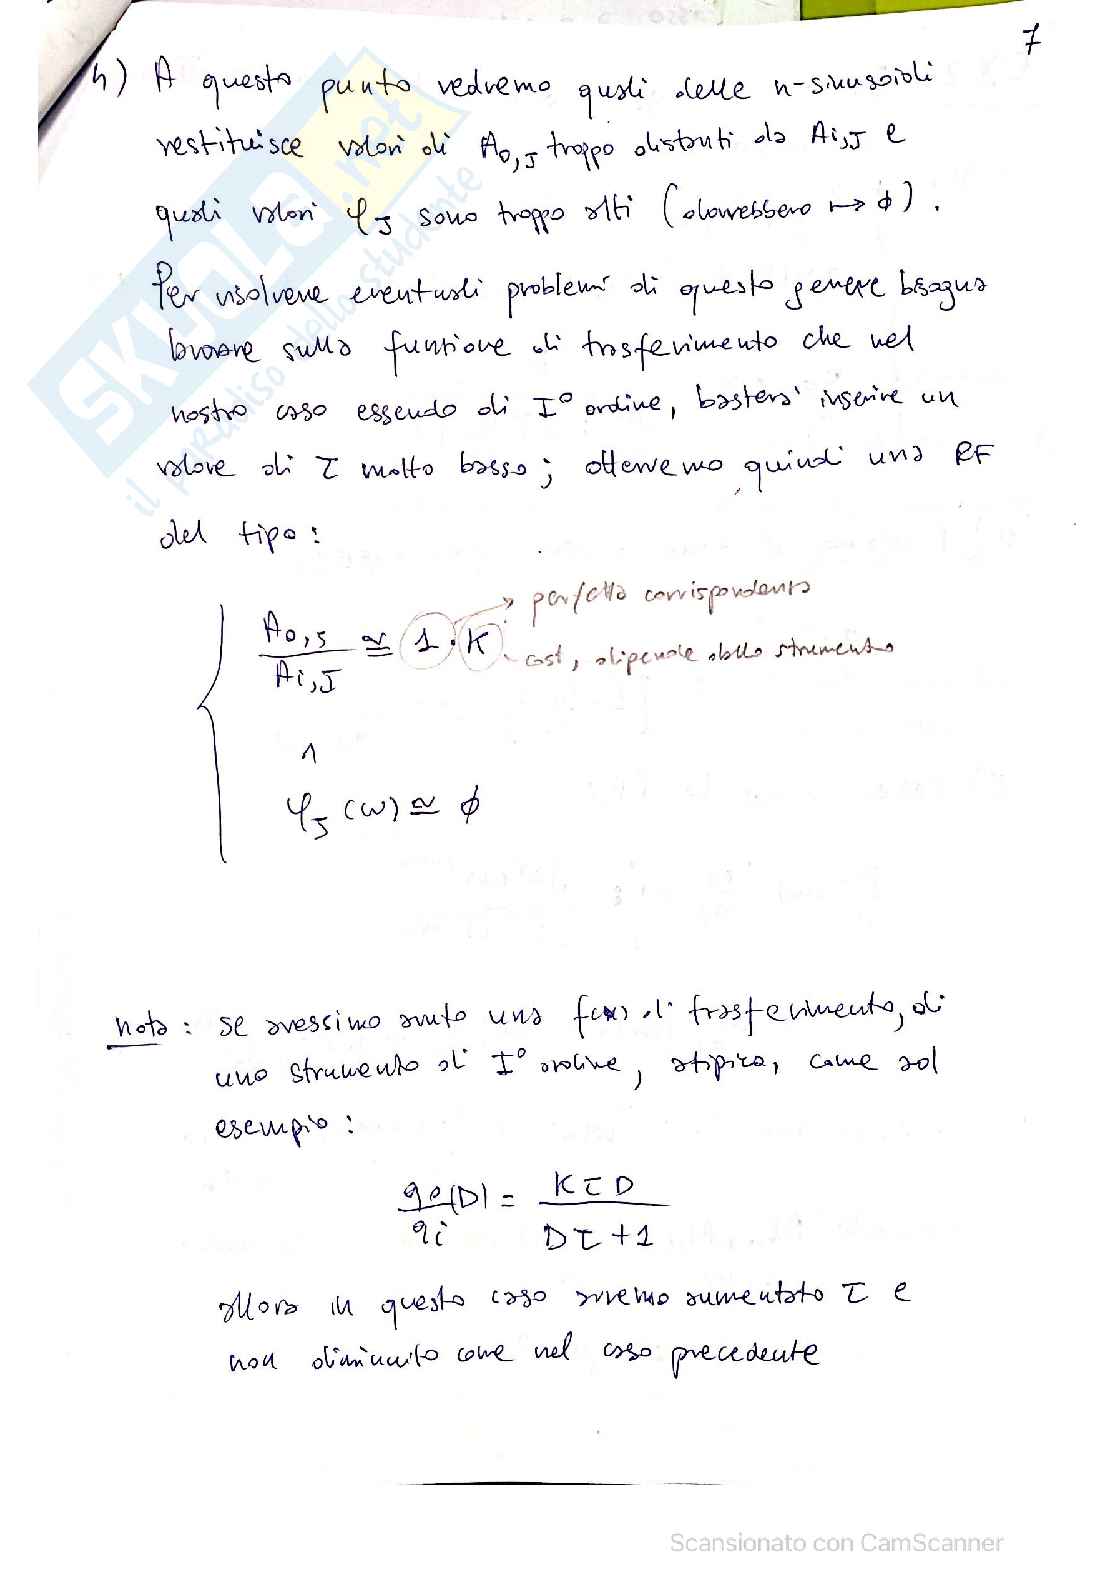 7
h) A questo punto vedremo quali delle n-sinusoidi
restituisce valori di Ao,J troppo distanti da Ai,J e
quali valori φJ sono troppo alti (dovrebbero ↦ ϕ).
Per risolvere eventuali problemi di questo genere bisogna
lavorare sulla funzione di trasferimento che nel
nostro caso essendo di I° ordine, basterà inserire un
valore di τ molto basso; otterremo quindi una RF
del tipo:
Ao,J / Ai,J ≅ 1 · K
perfetta corrispondenza
cost, dipende dallo strumento
∧
φJ (ω) ≅ ϕ
nota: se avessimo avuto una f(x) di trasferimento, di
uno strumento di I° ordine, atipica, come ad
esempio:
qo/qi (D) = KτD / Dτ+1
allora in questo caso avremo aumentato τ e
non diminuito come nel caso precedente
SKUOLA.net
il paradiso dello studente
Scansionato con CamScanner